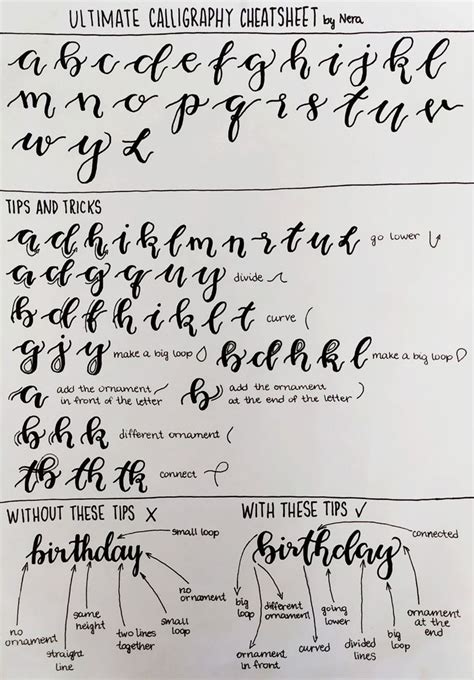 ULTIMATE CALLIGRAPHY CHEATSHEET by Nera
a b c d e f g h i j k l
m n o p q r s t u v
w y z
TIPS AND TRICKS
a d h i k l m n r t u z go lower
a d g q u y divide
b d f h i k l t curve
g j y make a big loop b d h k l make a big loop
a add the ornament b add the ornament
in front of the letter at the end of the letter
b h k different ornament
tb th tk connect
WITHOUT THESE TIPS X WITH THESE TIPS ✓
small loop connected
birthday birthday
no
ornament
same
height
small
loop
no
ornament
straight
line
two lines
together
big
loop
different
ornament
going
lower
ornament
at the
end
ornament
in front
curved
divided
lines
big
loop